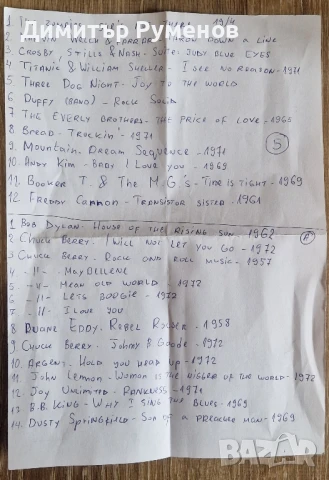 Димитър Руменов
1 The Zombies - She's 1964
2 Welch & Farrar - Down a Line
3 Crosby Stills & Nash - Suite: Judy Blue Eyes
4 Titanic & William Sheller - I see no reason - 1971
5 Three Dog Night - Joy to the world
6 Duffy (band) - Rock Solid
7 The Everly Brothers - The price of love - 1965
8 Bread - Truckin' - 1971
9 Mountain - Dream Sequence - 1971
10 Andy Kim - Baby I love you - 1969
11 Booker T & The M G's - Time is tight - 1969
12 Freddy Cannon - Transistor sister - 1961
5
1 Bob Dylan - House of the rising sun - 1962
A
2 Chuck Berry - I will not let you go - 1972
3 Chuck Berry - Rock and roll music - 1957
4 -11- - Maybellene
5 -11- - Mean old world - 1972
6 -11- - Lets boogie - 1972
7 -11- - I love you
8 Duane Eddy - Rebel Rouser - 1958
9 Chuck Berry - Johny B Goode - 1972
10. Argent - Hold you head up - 1972
11. John Lennon - Woman is the nigger of the world - 1972
12 Joy Unlimited - Rankness - 1971
13 B.B. King - Why I sing the blues - 1969
14. Dusty Springfield - Son of a preacher man - 1969
BAZAR